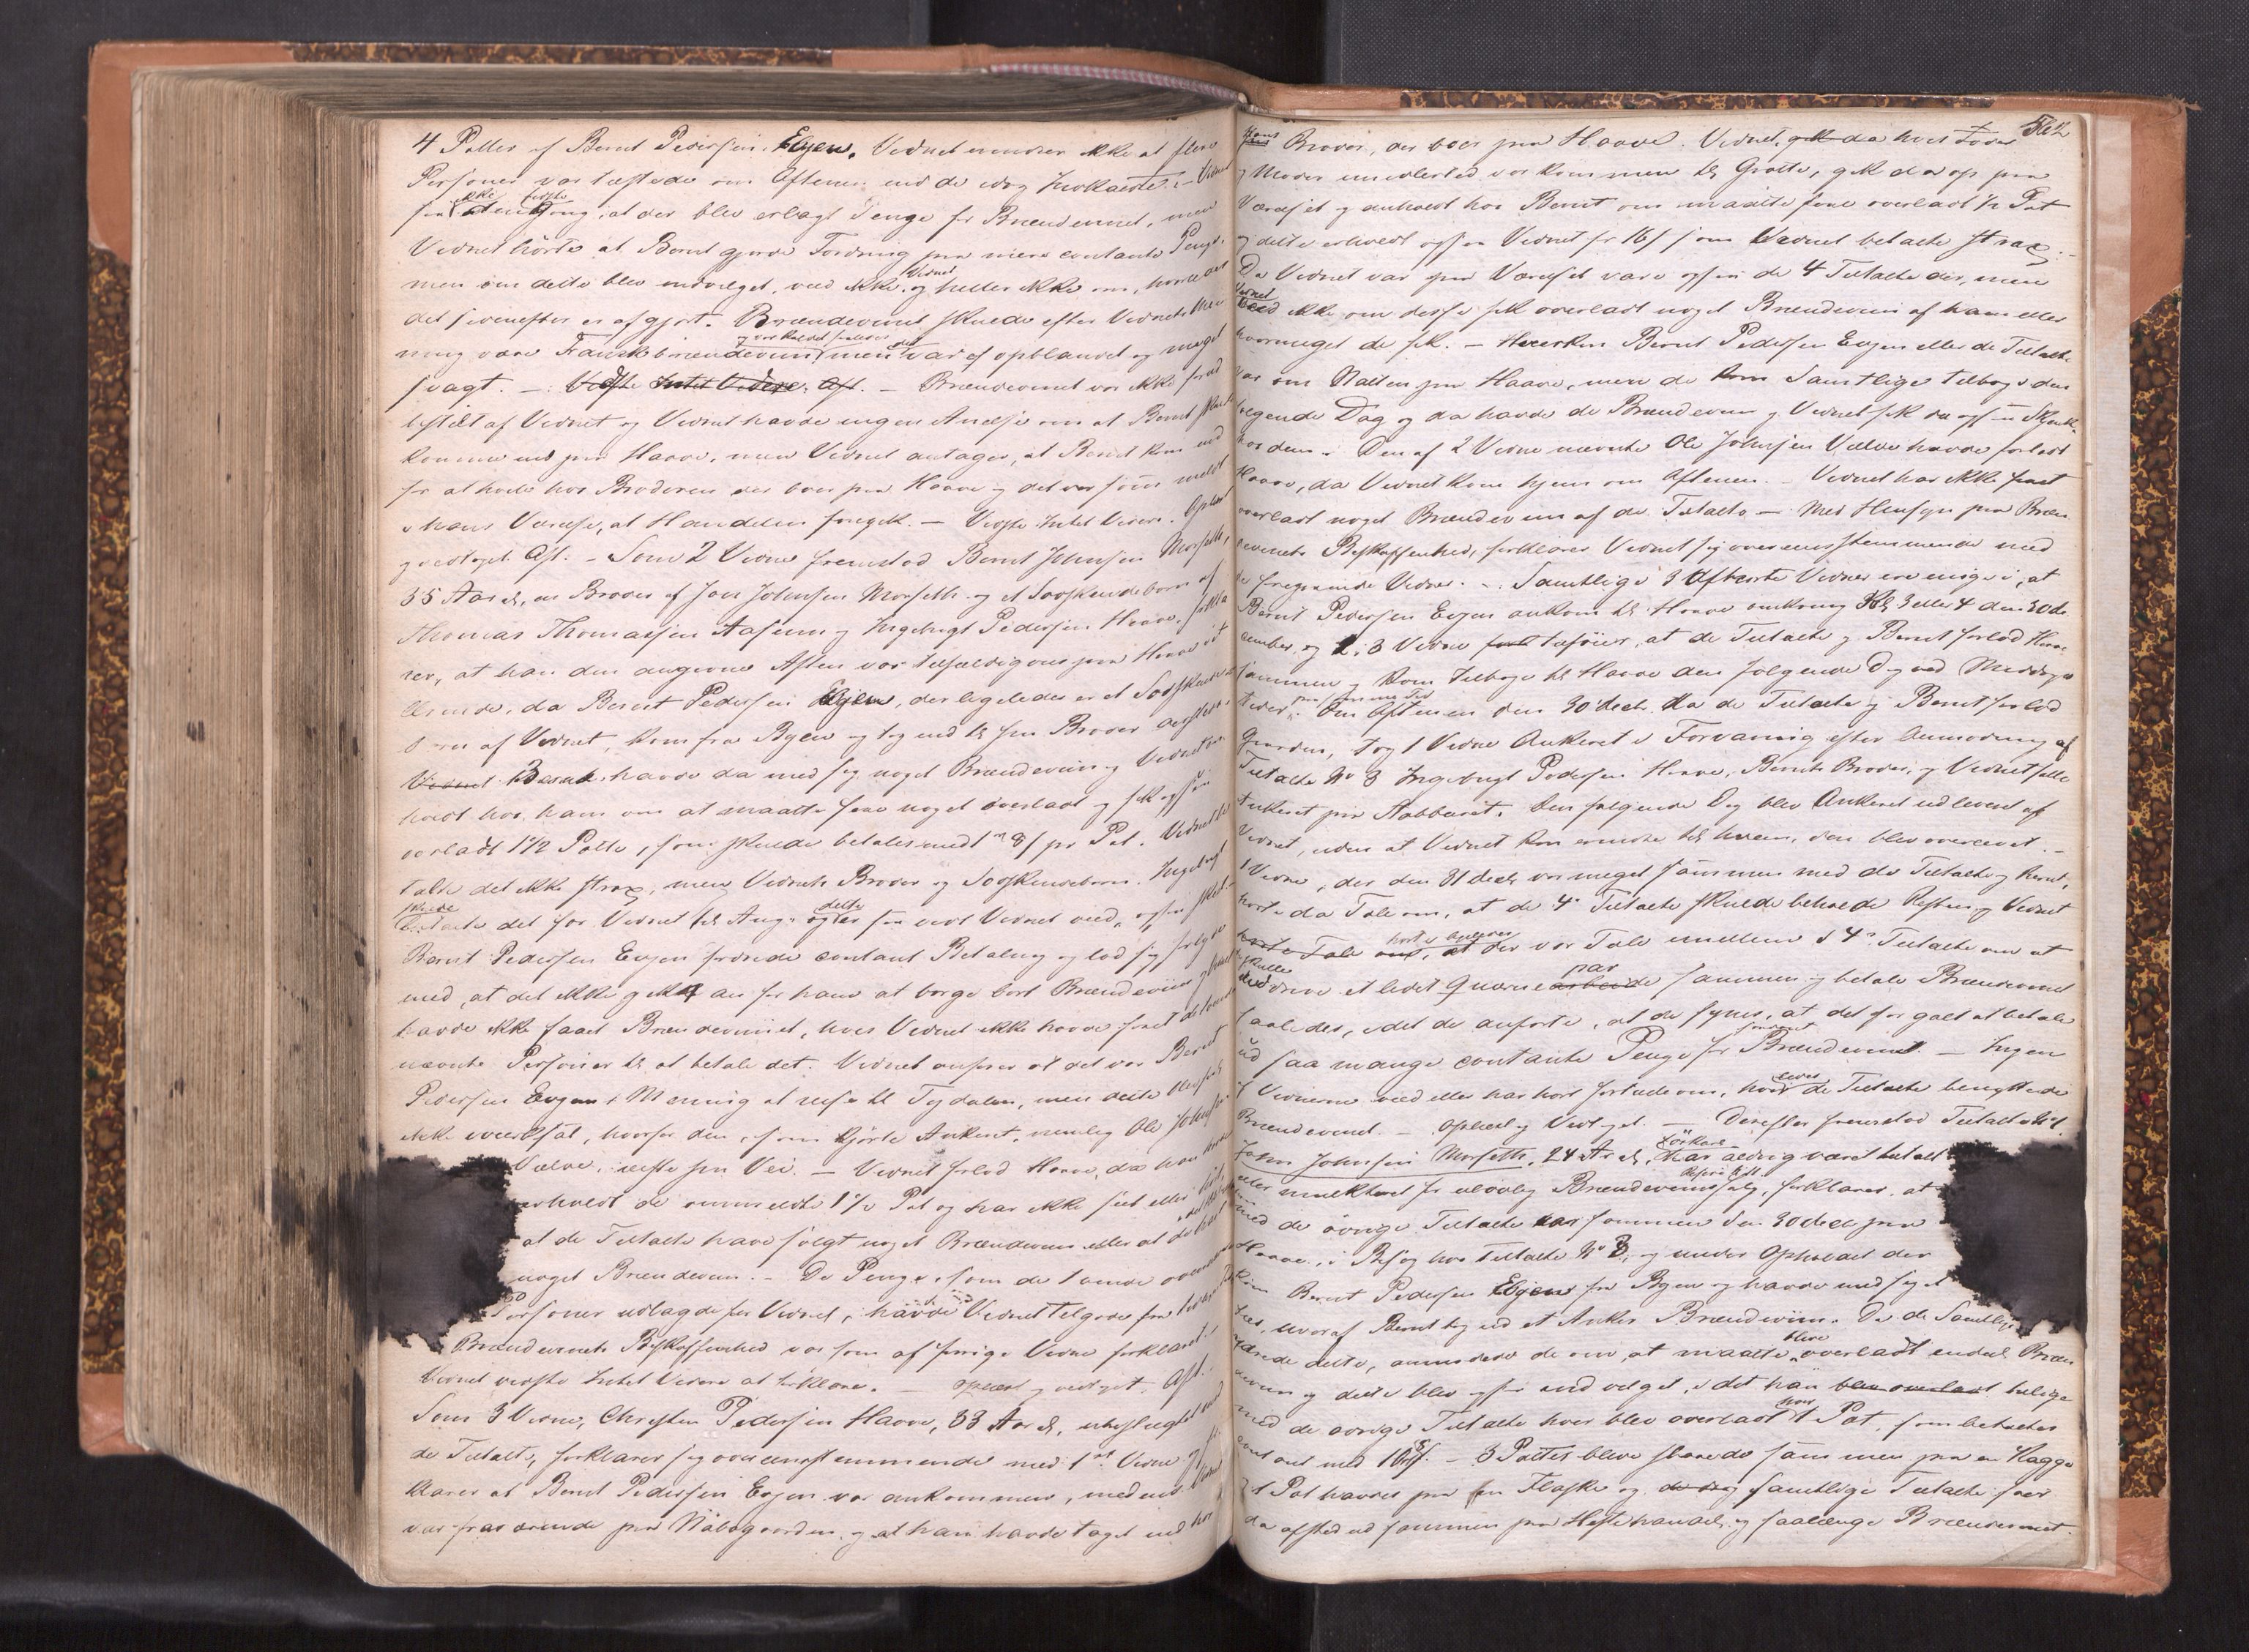 4 Potter af Bernt Pedersen Engen. Vidnet erindrer ikke at flere
Personer var tilstede om Aftenen end de idag Indkaldte. – Vidnet
saa ikke den Gang, at der blev erlagt Penge for Brændevinet, men
Vidnet hørte at Bernt gjorde Fordring paa mere contante Penge,
men om dette blev indvilget, veed Vidnet ikke og heller ikke om, hvorledes
det senere er afgjort. Brændevinet skulde efter Vidnets Me-
ning være Franskbrændeviin men det var opblandet og meget
svagt. – Vidste Intet Videre. Aft. – Brændevinet var ikke forud
bestilt af Vidnet og Vidnet havde ingen Anelse om at Bernt skulde
komme ind paa Haave, men Vidnet antager, at Bernt kom ind
for at hvile hos Broderen der boer paa Haave og det var som meldt
i hans Værelse, at Handelen foregik. – Vidste Intet Videre. Oplæst
og vedtaget Aft. – Som 2 Vidne fremstod Bernt Johnsen Morseth,
35 Aar gl., en Broder af Jon Johnsen Morseth og et Sødskendebarn af
Thomas Thomassen Aasenn og Ingebrigt Pedersen Haave, forkla-
rer, at han den angivne Aften var tilfældigviis paa Haave i et
Ærende, da Bernt Pedersen Engen, der ligeledes er et Sødskende-
barn af Vidnet, kom fra Byen og tog ind til sin Broder
Vidnet Bernt havde da med sig noget Brændeviin og Vidnet an-
holdt hos ham om at maatte faae noget overladt og fik ogsaa
overladt 1 1/2 Potte, som skulde betales med 1 ort 8 s pr Pot. Vidnet be-
talte det ikke strax, men Vidnets Broder og Sødskendebarn Ingebrigt
skulde betale det for Vidnet og dette er saa vidt Vidnet veed, ogsaa skeet.
Bernt Pedersen Engen fordrede contant Betaling og lod sig forlyde
med, at det ikke gik an for ham at borge bort Brændeviin og han
havde ikke faaet Brændevinet, hvis Vidnet ikke havde faaet de tvende
nævnte Personer til at betale det. Vidnet anfører at det var Bernt
Pedersen Engens Mening at reise til Tydalen, men dette blev
ikke iværksat, hvorfor den, som kjørte Ankeret, nemlig Ole Johnsen
Vælve, reiste sin Vei. – Vidnet forlod Haave, da han havde
erholdt de ommeldte 1 1/2 Pot og har ikke seet eller hørt
at de Tiltalte have solgt noget Brændeviin eller at de have
noget Brændeviin. – De Penge, som de tvende ovennævnte
Personer udlagde for Vidnet, havde Vidnet tilgode fra
Brændevinets Beskaffenhed var som af forrige Vidne forklaret.
Vidnet vidste Intet Videre at forklare. – oplæst og vedtaget. Aft.
Som 3 Vidne, Christen Pedersen Haave, 33 Aar gl., ubeslægtet med
de Tiltalte, forklarer sig overeensstemmende med 1ste Vidne og
klarer at Bernt Pedersen Engen var ankommen, medens Vidnet
var fraværende paa Nabogaarden og at han havde taget ind hos
562
Hans Broder, der boer paa Haave. Vidnet, da hvis Fader
og Moder imidlertid var kommen til Grøtte, gik da op paa
Værelset og anholdt hos Bernt om maatte faae overladt 1/2 Pot
og dette erholdt ogsaa Vidnet for 16 s som Vidnet betalte strax. –
Da Vidnet var paa Værelset vare ogsaa de 4 Tiltalte der, men
Vidnet veed ikke om disse fik overladt noget Brændeviin af ham eller
hvormeget de fik. – Hverken Bernt Pedersen Engen eller de Tiltalte
var om Natten paa Haave, men de kom Samtlige tilbage den
følgende Dag og da havde de Brændeviin og Vidnet fik da ogsaa Skjænk
hos dem. Den af 2 Vidne nævnte Ole Johnsen Vælve havde forladt
Haave, da Vidnet kom hjem om Aftenen. – Vidnet har ikke faaet
overladt noget Brændeviin af de Tiltalte – Med Hensyn paa Bræn-
devinets Beskaffenhed, forklarer Vidnet sig overeensstemmende med
de foregaaende Vidner. – Samtlige 3 afhørte Vidner ere enige i, at
Bernt Pedersen Engen ankom til Haave omkring Kl 3 eller 4 den 30 de-
cember, og 1, 3 Vidne tilføier, at de Tiltalte og Bernt forlod Haave
sammen og kom tilbage til Haave den følgende Dag ved Middags-
tider paa samme Tid. Om Aftenen den 30 decbr. da de Tiltalte og Bernt forlod
Gaarden, tog 1 Vidne Ankeret i Forvaring efter Anmodning af
Tiltalte No 3 Ingebrigt Pedersen Haave, Bernts Broder, og Vidnet satte
Ankeret paa Stabburet. Den følgende Dag blev Ankeret udleveret af
Vidnet, uden at Vidnet kan erindre til hvem, den blev overleveret. –
1 Vidne, der den 31 decbr var meget sammen med de Tiltalte og Bernt,
hørte da Tale om, at de 4 Tiltalte skulde beholde Resten og Vidnet
hørte Tale om, at der var Tale imellem de 4 Tiltalte om at
skulle drive et lidet Qværnearbeide sammen og betale Brændevinet
saaledes, idet de anførte, at de synes, at det for galt at betale
ud saa mange contante Penge for Brændevinet. – Ingen
af Vidnerne veed eller har hørt fortælle om, hvorledes de Tiltalte benyttede
Brændevinet. – oplæst og Vedtaget. – Derefter fremstod Tiltalte No 1
John Johnsen Morseth, 24 Aar gl., har aldrig været tiltalt
eller mulkteret for ulovlig Brændeviinssalg, forklarer, at
med de øvrige Tiltalte var sammen den 30 decbr paa
Haave, i Besøg hos Tiltalte No 3, og under Opholdet der
kom Bernt Pedersen Engen fra Byen og havde med sig et
Læs, hvoraf Bernt tog ud et Anker Brændeviin. Da de Samtlige
dette, anmodede de om at maatte blive overladt endeel Bræn-
deviin og dette blev ogsaa indvilget, idet han blev overladt tillige
med de øvrige Tiltalte hver blev overladt 1 Pot, som betaltes
contant med – 3 Potter bleve slaaede sammen paa en Kagge
og 1 Pot havdes paa en Flaske og samtlige Tiltalte foer
da afsted ud sammen paa Hestehandel og saalænge Brændevinet